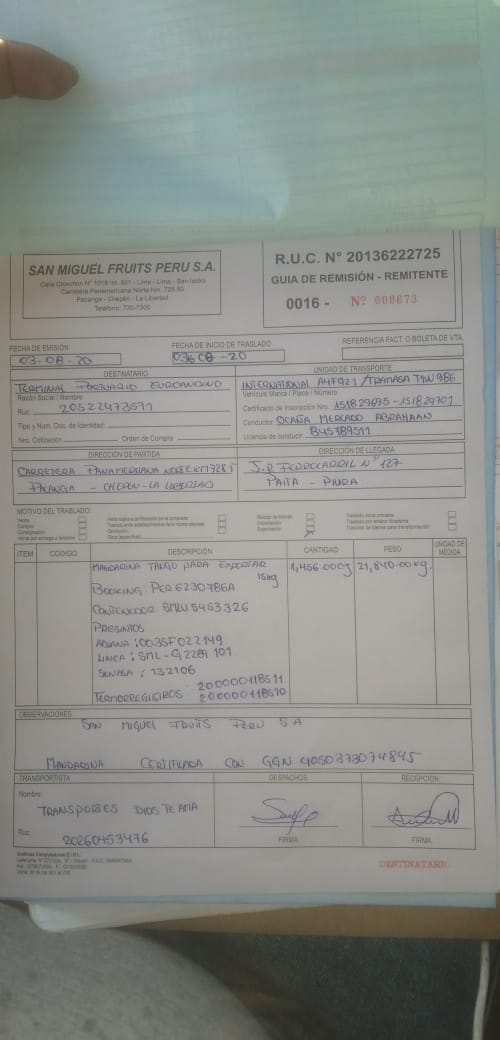 SAN MIGUEL FRUITS PERU S.A.
Calle Chinchón N° 1018 Int. 501 - Lima - Lima - San Isidro
Carretera Panamericana Norte Km. 728.50
Pacanga - Chepén - La Libertad
Teléfono: 730-7300
R.U.C. N° 20136222725
GUIA DE REMISIÓN - REMITENTE
0016 - Nº 000673
FECHA DE EMISIÓN
03-08-20
FECHA DE INICIO DE TRASLADO
03-08-20
REFERENCIA FACT. O BOLETA DE VTA.
DESTINATARIO
TERMINAL PORTUARIO EUROANDINO
Razón Social / Nombre
Ruc: 20522473571
Tipo y Num. Doc. de Identidad:
Nro. Cotización: Orden de Compra:
UNIDAD DE TRANSPORTE
INTERNATIONAL A4F921 / TRAMASA T1W986
Vehículo Marca / Placa / Número
Certificado de Inscripción Nro. 151829695-151829701
Conductor: OCAÑA MERCADO ABRAHAAN
Licencia de conducir: B45789511
DIRECCIÓN DE PARTIDA
CARRETERA PANAMERICANA NORTE KM 728.5
PACANGA - CHEPEN - LA LIBERTAD
DIRECCIÓN DE LLEGADA
J.R FERROCARRIL Nº 127
PAITA - PIURA
MOTIVO DEL TRASLADO:
Venta
Compra
Consignación
Devolución
Importación
Exportación X
ITEM CODIGO DESCRIPCIÓN CANTIDAD PESO UNIDAD DE MEDIDA
MANDARINA TANGO PARA EXPORTAR 1,456.000 21,840.00 kg.
15kg
BOOKING PER6230786A
CONTENEDOR SMLU 5453326
PRECINTOS
ADUANA: 003SF022149
LINEA: SML-G2289 101
SENASA: 132106
200000118511
TERMOREGISTROS 200000118510
OBSERVACIONES
SAN MIGUEL FRUITS PERU S A
MANDARINA CERTIFICADA CON GGN 4050373074845
TRANSPORTISTA
DESPACHOS
RECEPCIÓN
Nombre:
TRANSPORTES DIOS TE AMA
Ruc: 20260453476
FIRMA
FIRMA
DESTINATARIO